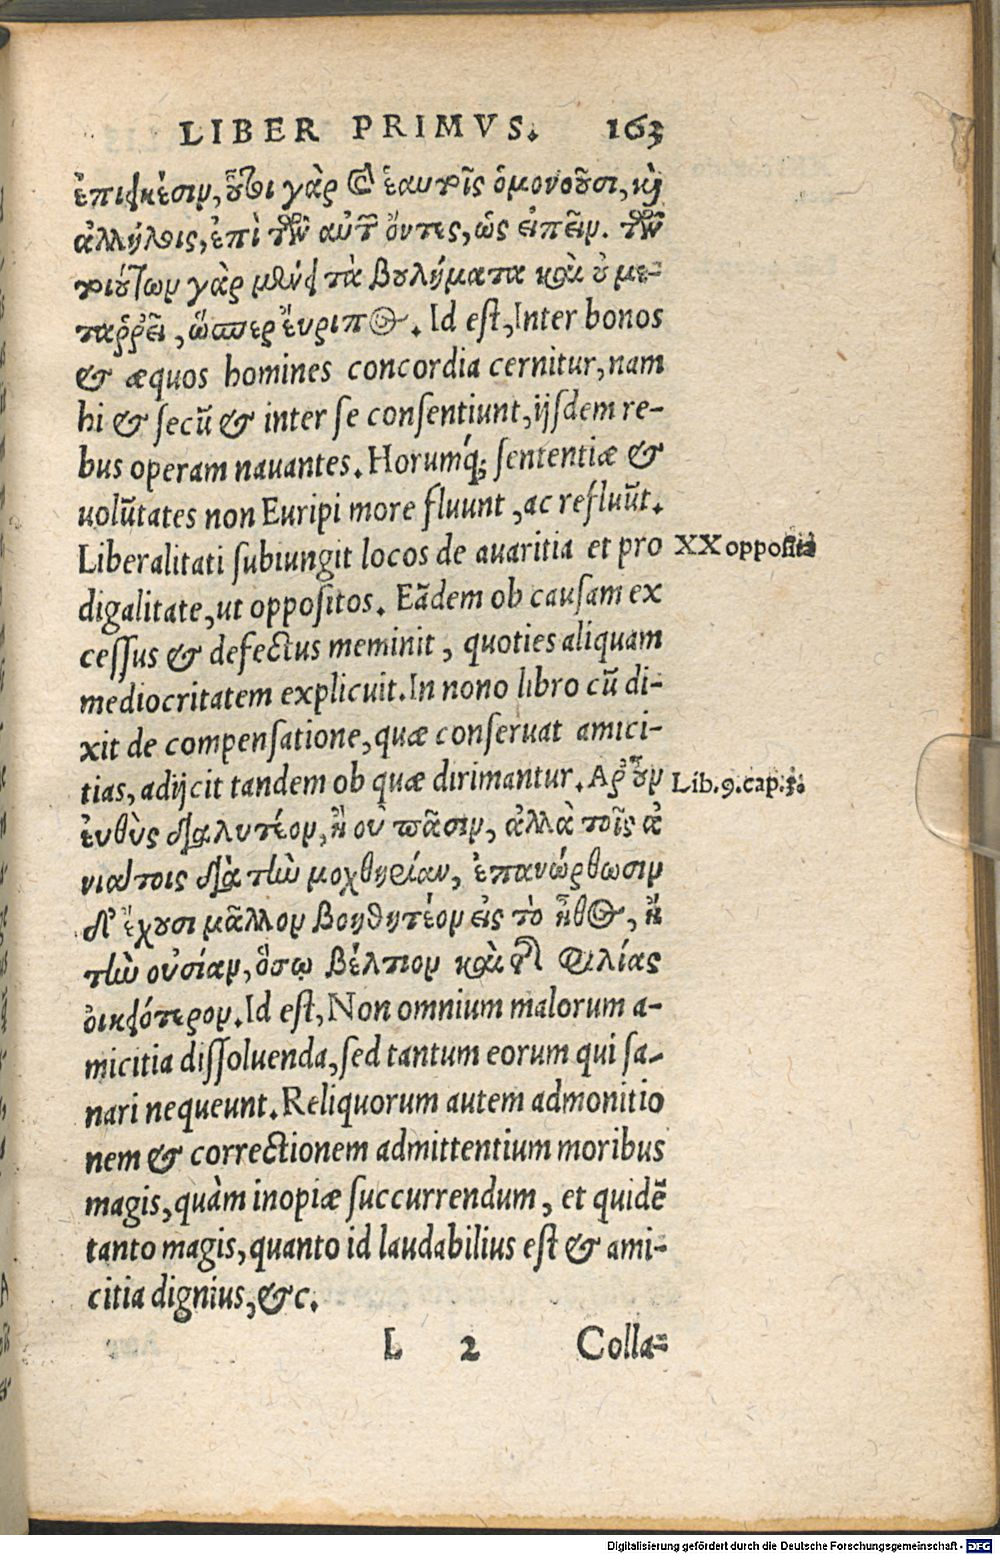 LIBER PRIMVS. 163
ἐπιεικέσιν, οὗτοι γὰρ καὶ ἑαυτοῖς ὁμονοοῦσι, καὶ
ἀλλήλοις, ἐπὶ τῶν αὐτῶν ὄντες, ὡς εἰπεῖν. τῶν
τοιούτων γὰρ μένει τὰ βουλήματα καὶ οὐ με-
ταῤῥεῖ, ὥσπερ ἔυριπος. Id est, Inter bonos
& æquos homines concordia cernitur, nam
hi & secū & inter se consentiunt, ijsdem re-
bus operam nauantes. Horumq́; sententiæ &
uolūtates non Euripi more fluunt, ac refluūt.
Liberalitati subiungit locos de auaritia et pro
XX opposita
digalitate, ut oppositos. Eādem ob causam ex
cessus & defectus meminit, quoties aliquam
mediocritatem explicuit. In nono libro cū di-
xit de compensatione, quæ conseruat amici-
tias, adijcit tandem ob quæ dirimantur. Αρ οὖν
Lib. 9. cap. 3.
ἐυθὺς διαλυτέον, ἢ οὐ πᾶσιν, ἀλλὰ τοῖς ἀ
νιάτοις διὰ τὴν μοχθηρίαν, ἐπανώρθωσιν
δ' ἔχουσι μᾶλλον βοηθητέον εἰς τὸ ἦθος, ἢ
τὴν οὐσίαν, ὅσῳ βέλτιον καὶ τῆς φιλίας
ὀικειότερον. Id est, Non omnium malorum a-
micitia dissoluenda, sed tantum eorum qui sa-
nari nequeunt. Reliquorum autem admonitio
nem & correctionem admittentium moribus
magis, quàm inopiæ succurrendum, et quidē
tanto magis, quanto id laudabilius est & ami-
citia dignius, &c.
L 2 Colla-
Digitalisierung gefördert durch die Deutsche Forschungsgemeinschaft - DFG